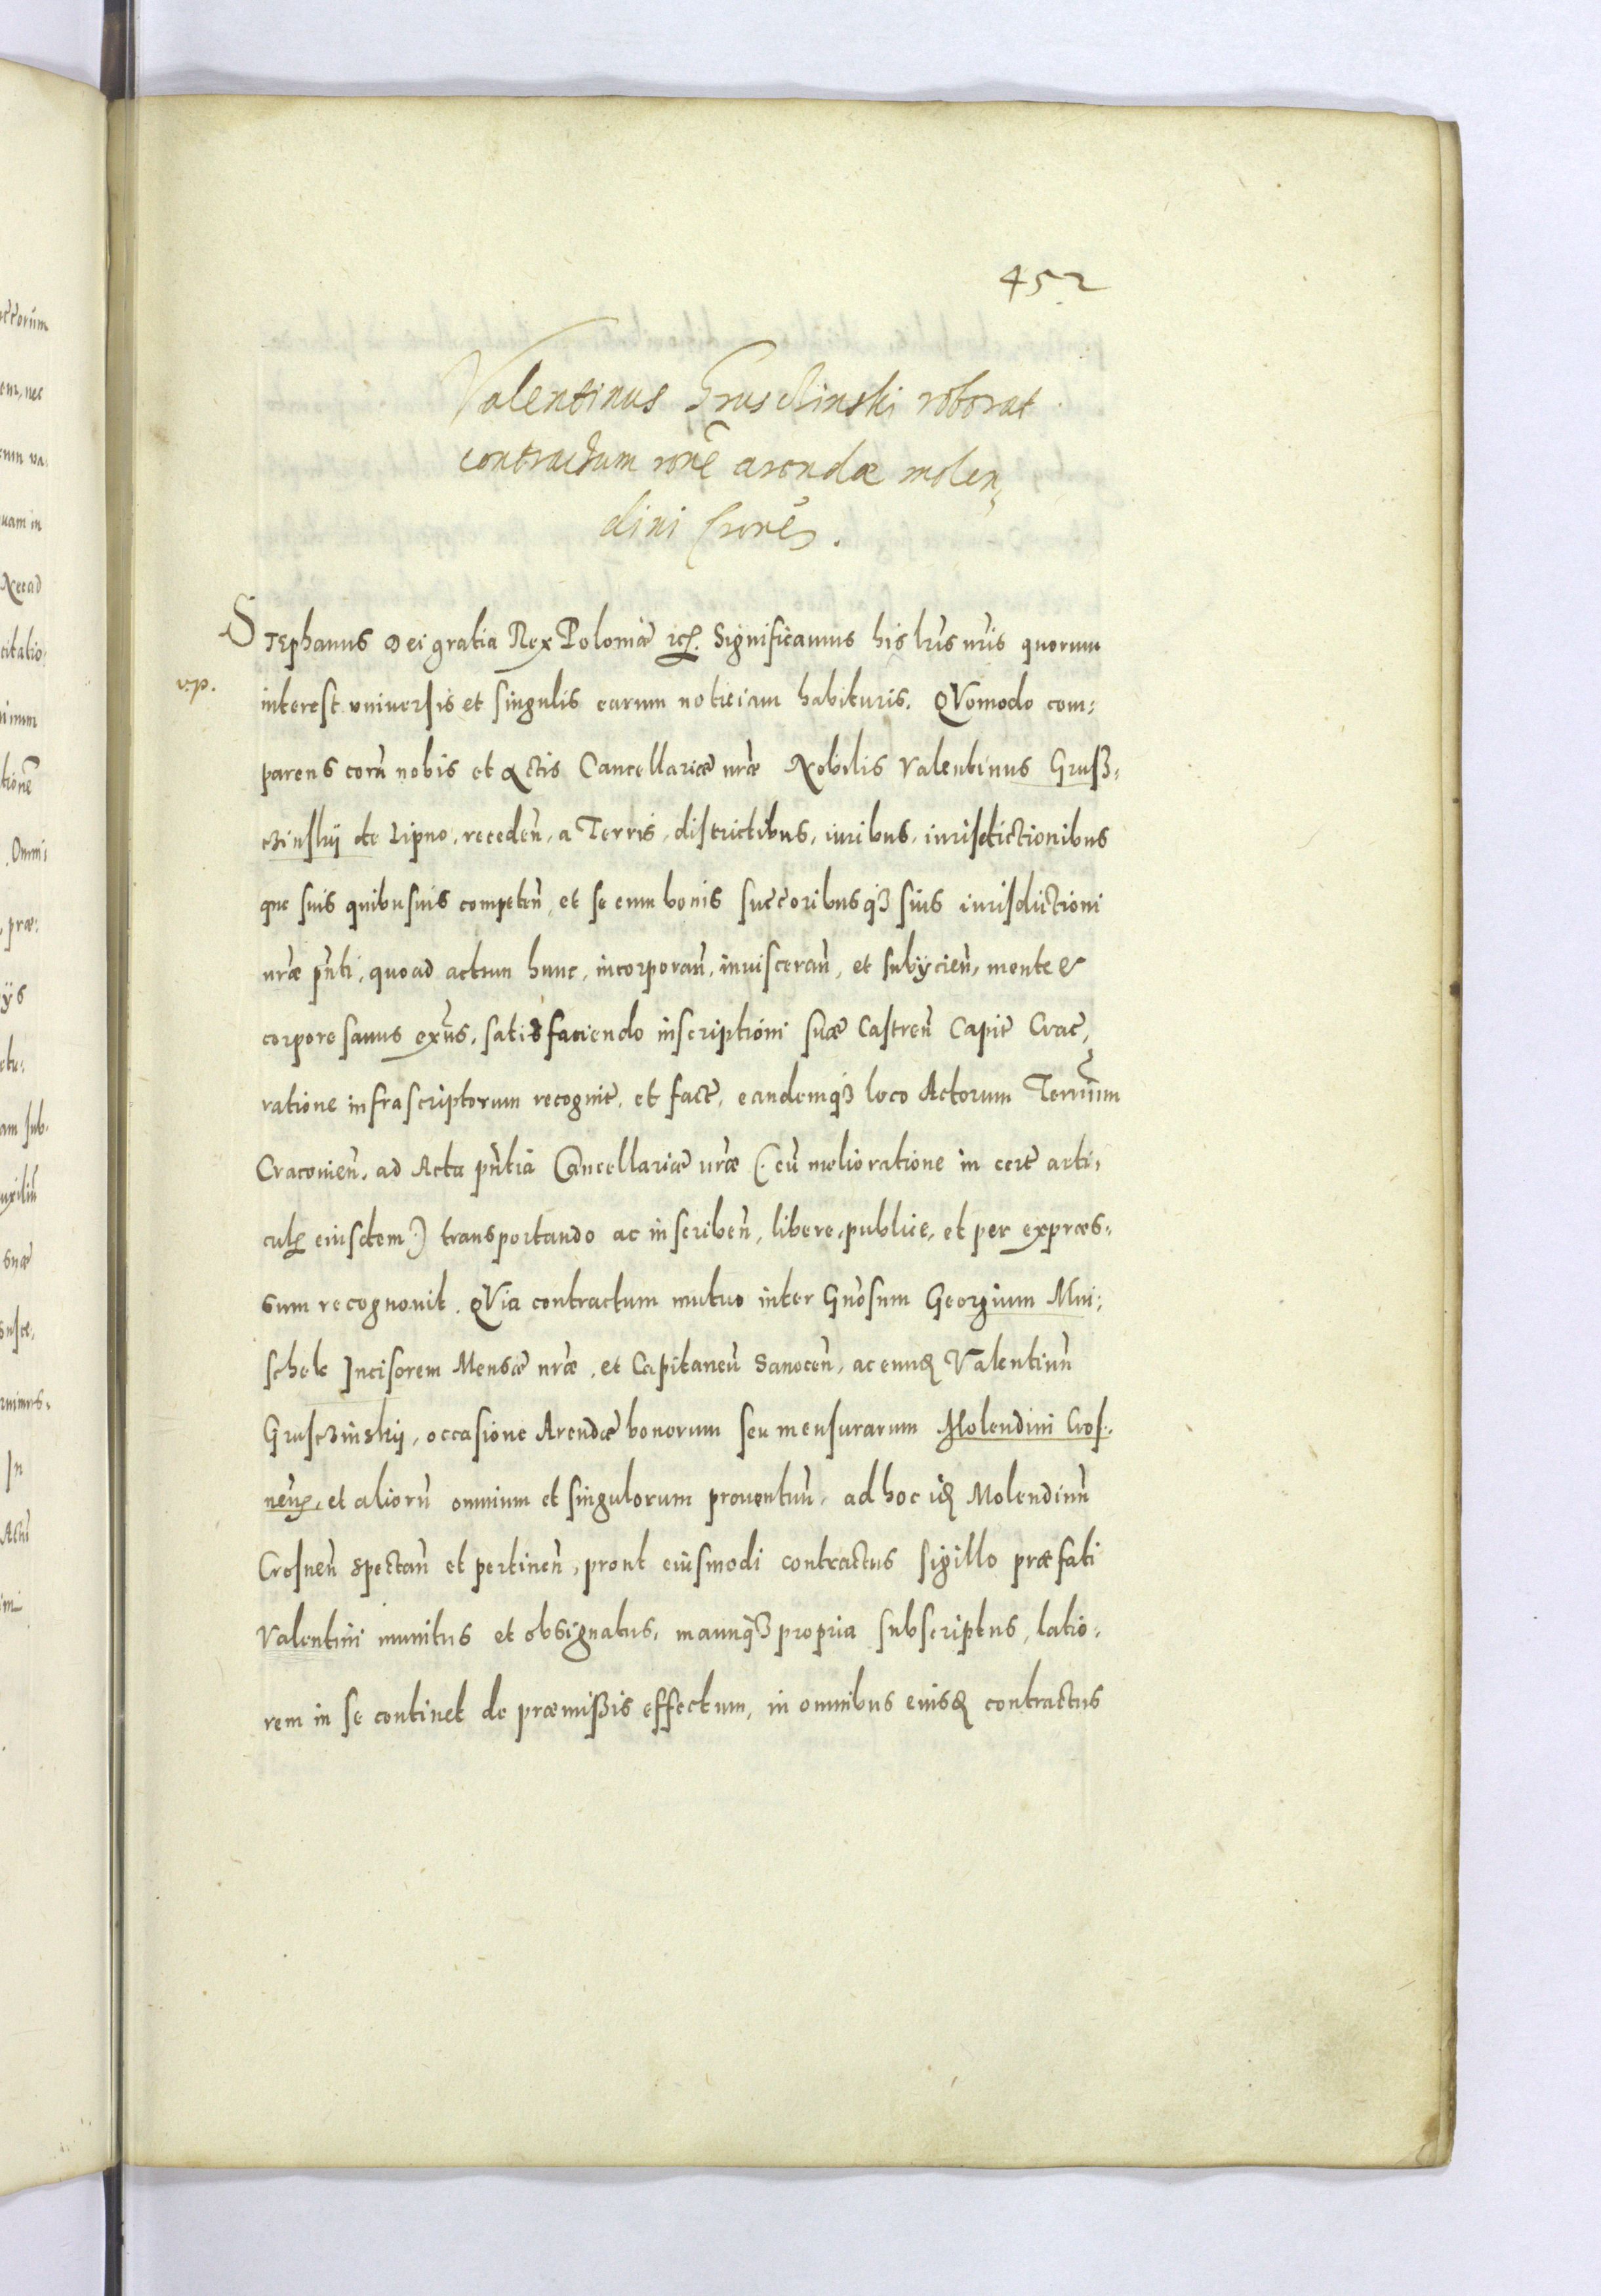 452
Valentinus Grusclinski roborat
contractum rone͂ arendæ molen¸
dini Crone͂s.
STEphanus Dei gratia Rex Poloniæ ꝛcꝭ. Significamus his lris nris quorum
v.p.
interest vniuersis et singulis earum noticiam habituris. QVomodo com:
parens cora͂ nobis et Actis Cancellariæ nr̃æ Nobilis Valentinus Grusz:
czinskij de Lipno, receden͂, a Terris, districtibus, iuribus, iurisdictionibus
que suis quibusuis competen͂, et se cum bonis succ̃oribusqꝫ suis iurisdictioni
nr̃æ pn̄ti, quoad actum hunc, incorporan͂, inuisceran͂, et subijcien͂, mente et
corpore sanus exn͂s, satisfaciendo inscriptioni suæ Castren͂ Capit̃ Crac̃,
ratione infrascriptorum recognit̃, et fact̃, eandemqꝫ loco Actorum Terr̃um
Cracouien͂, ad Acta pn̄tia Cancellariæ nr̃æ (: cu͂ melioratione in cert̃ arti:
culꝭ eiusdem :) transportando ac inscriben͂, libere, publice, et per expræs:
sum recognouit. QVia contractum mutuo inter Gn̄osum Georgium Mni:
schek Incisorem Mensæ nr̃æ, et Capitaneu͂ Sanocen͂, ac eundꝭ Valentinu͂
Gruszczinskij, occasione Arendæ bonorum seu mensurarum Molendini Cros:
nenꝭ, et alioru͂ omnium et singulorum prouentuu͂, ad hoc idꝭ Molendinu͂
Crosnen͂ spectan͂ et pertinen͂, prout eiusmodi contractus sigillo præfati
Valentini munitus et obsignatus, manuqꝫ propria subscriptus, latio:
rem in se continet de præmissis effectum, in omnibus eiusdꝭ contractus